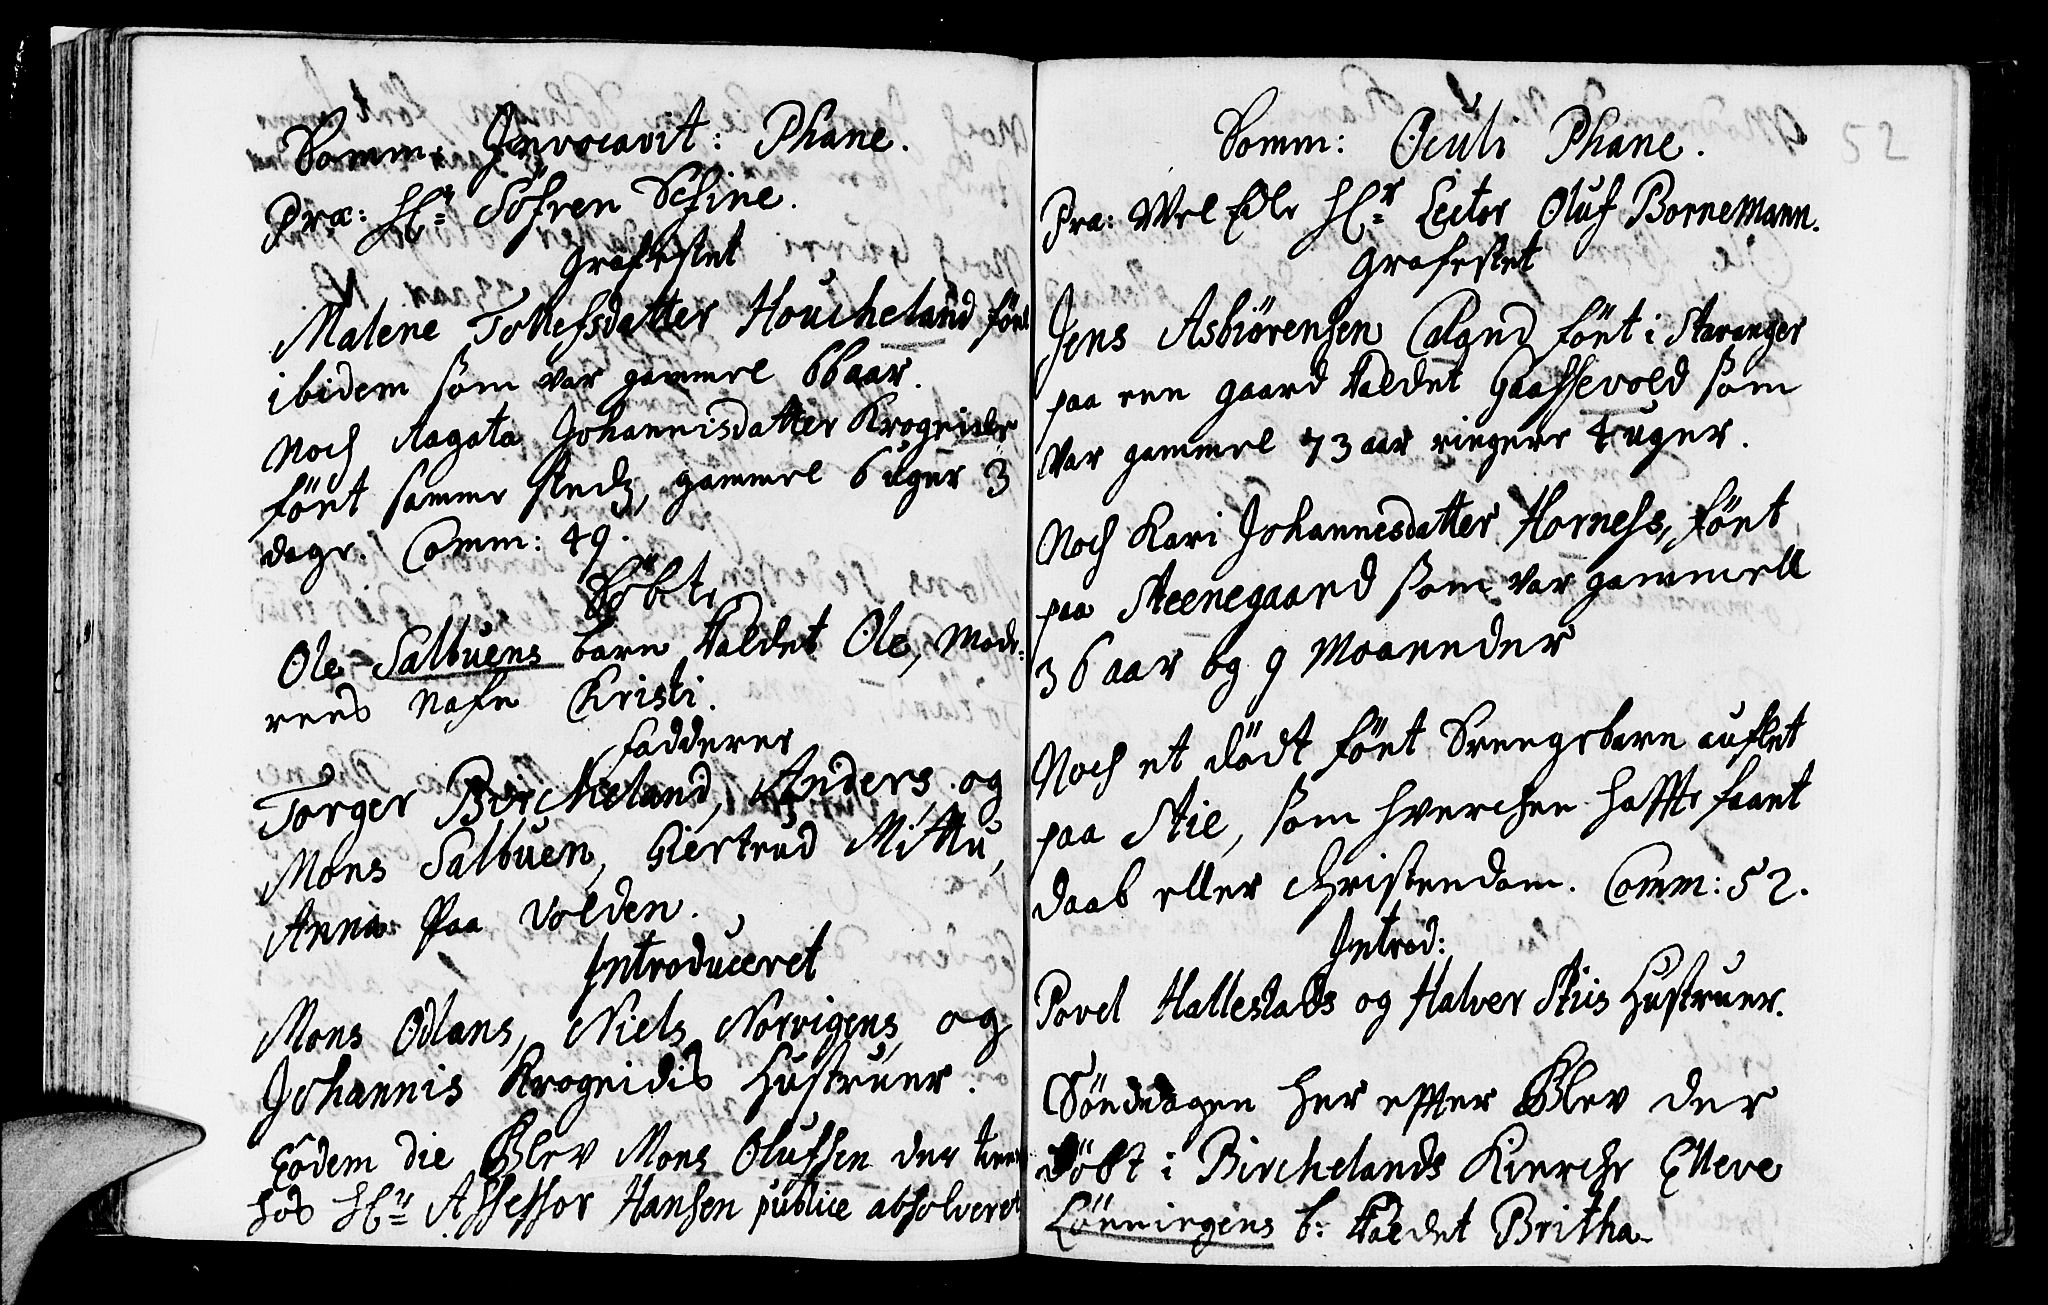 Domm: Invocavit: Phane.
Præ: Hr Söfren Schine.
Grafestet
Malene Tollefsdatter Houcheland födt
ibidem som var gammel 66 aar.
Noch Aagata Johannisdatter Krogeide
födt samme stedz, gammel 6 uger 3
dage. Comm: 49.
Döbte
Ole Salbuens barn kaldet Ole, Mode-
rens Nafn Kristi.
Fadderer
Torger Bircheland, Anders og
Mons Salbuen, Giertrud Mittu,
Anna Paa Volden.
Introduceret
Mons Odlans, Niels Norvigens, og
Johannis Krogeidis Hustruer.
Eodem die Blev Mons Olufsen der tien
hos Hr Assessor Hansen publice absolveret
52
Domm: Oculi Phane.
Præ: Wel Edle Hr Lector Oluf Bornemann.
Grafestet
Jens Asbiörensen Caland födt i Stavanger
paa een gaard kaldet Gaassevold som
var gammel 73 aar ringere 4 uger.
Noch Kari Johannesdatter Horness, födt
paa Steenegaard som var gammell
36 aar og 9 Maaneder
Noch et dödt födt Drengebarn auflet
paa Stie, som hverchen haffte faaet
daab eller Christendom. Comm: 52.
Introd:
Povel Hallestads og Halver Stiis Hustruer.
Söndagen her effter Blev der
döbt i Birchelands Kierche Elleve
Lönningens b: kaldet Britha